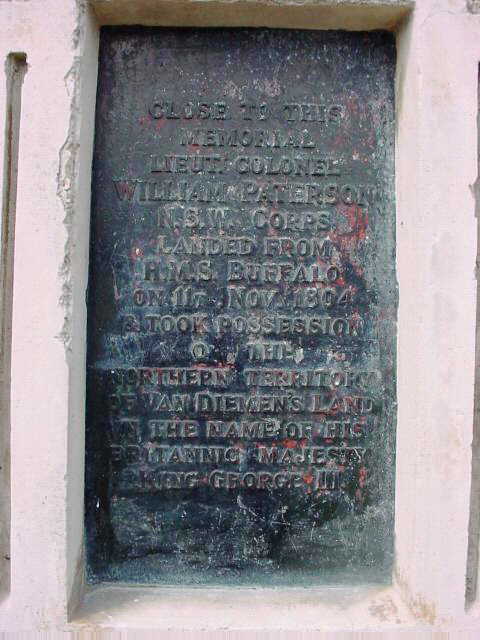 CLOSE TO THIS
MEMORIAL
LIEUT. COLONEL
WILLIAM PATERSON
N.S.W. CORPS
LANDED FROM
H.M.S. BUFFALO
ON 11T. NOV. 1804
& TOOK POSSESSION
OF THE
NORTHERN TERRITORY
OF VAN DIEMEN'S LAND
IN THE NAME OF HIS
BRITANNIC MAJESTY
KING GEORGE III